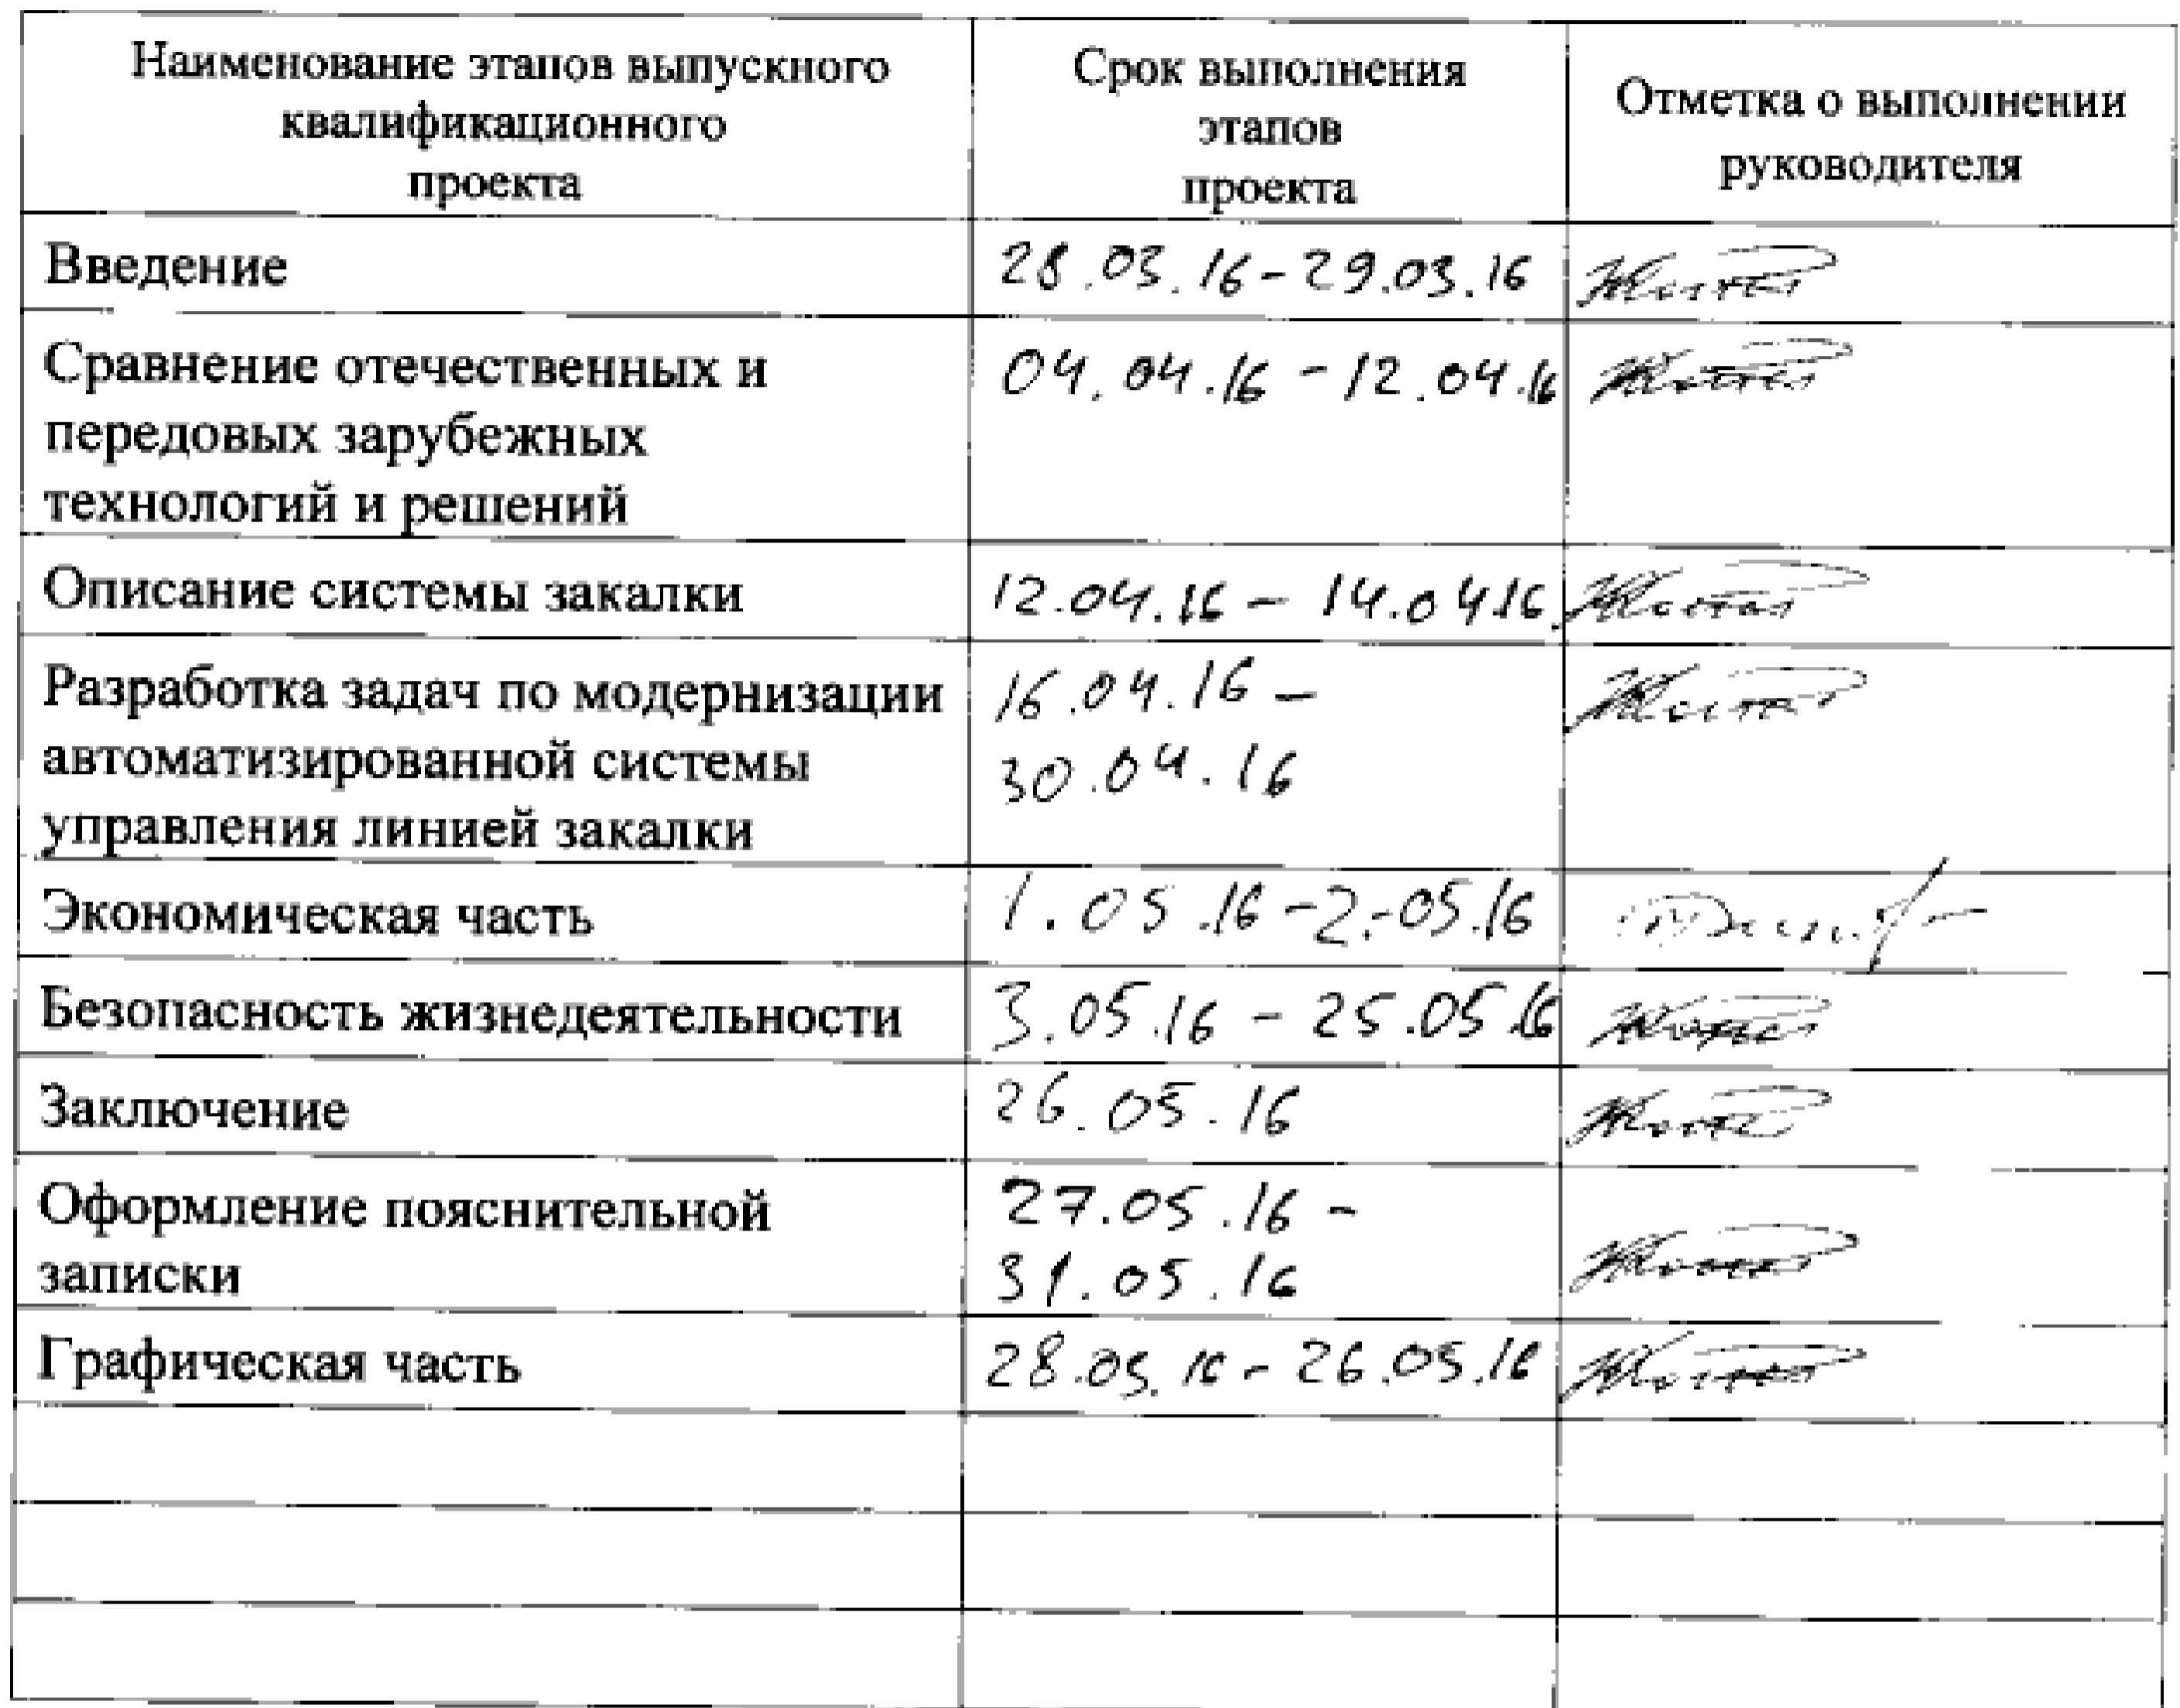 Наименование этапов выпускного
квалификационного
проекта
Срок выполнения
этапов
проекта
Отметка о выполнении
руководителя
Введение
28.03.16-29.03.16
Сравнение отечественных и
передовых зарубежных
технологий и решений
04.04.16-12.04.16
Описание системы закалки
12.04.16-14.04.16
Разработка задач по модернизации
автоматизированной системы
управления линией закалки
16.04.16-
30.04.16
Экономическая часть
1.05.16-2.05.16
Безопасность жизнедеятельности
3.05.16-25.05.16
Заключение
26.05.16
Оформление пояснительной
записки
27.05.16-
31.05.16
Графическая часть
28.03.16-26.05.16